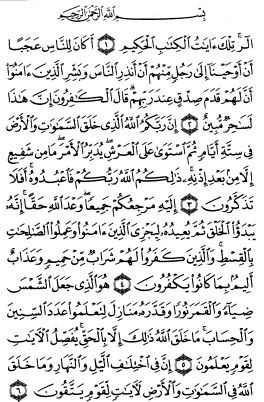 بِسْمِ اللَّهِ الرَّحْمَٰنِ الرَّحِيمِ
الٓرۚ تِلْكَ ءَايَٰتُ ٱلْكِتَٰبِ ٱلْحَكِيمِ ١ أَكَانَ لِلنَّاسِ عَجَبًا
أَنْ أَوْحَيْنَآ إِلَىٰ رَجُلٍ مِّنْهُمْ أَنْ أَنذِرِ ٱلنَّاسَ وَبَشِّرِ ٱلَّذِينَ ءَامَنُوٓا۟
أَنَّ لَهُمْ قَدَمَ صِدْقٍ عِندَ رَبِّهِمْۗ قَالَ ٱلْكَٰفِرُونَ إِنَّ هَٰذَا
لَسَٰحِرٌ مُّبِينٌ ٢ إِنَّ رَبَّكُمُ ٱللَّهُ ٱلَّذِى خَلَقَ ٱلسَّمَٰوَٰتِ وَٱلْأَرْضَ
فِى سِتَّةِ أَيَّامٍ ثُمَّ ٱسْتَوَىٰ عَلَى ٱلْعَرْشِۖ يُدَبِّرُ ٱلْأَمْرَۖ مَا مِن شَفِيعٍ
إِلَّا مِنۢ بَعْدِ إِذْنِهِۦۚ ذَٰلِكُمُ ٱللَّهُ رَبُّكُمْ فَٱعْبُدُوهُۚ أَفَلَا
تَذَكَّرُونَ ٣ إِلَيْهِ مَرْجِعُكُمْ جَمِيعًاۖ وَعْدَ ٱللَّهِ حَقًّاۚ إِنَّهُۥ
يَبْدَؤُا۟ ٱلْخَلْقَ ثُمَّ يُعِيدُهُۥ لِيَجْزِىَ ٱلَّذِينَ ءَامَنُوا۟ وَعَمِلُوا۟ ٱلصَّٰلِحَٰتِ
بِٱلْقِسْطِۚ وَٱلَّذِينَ كَفَرُوا۟ لَهُمْ شَرَابٌ مِّنْ حَمِيمٍ وَعَذَابٌ
أَلِيمٌۢ بِمَا كَانُوا۟ يَكْفُرُونَ ٤ هُوَ ٱلَّذِى جَعَلَ ٱلشَّمْسَ
ضِيَآءً وَٱلْقَمَرَ نُورًا وَقَدَّرَهُۥ مَنَازِلَ لِتَعْلَمُوا۟ عَدَدَ ٱلسِّنِينَ
وَٱلْحِسَابَۚ مَا خَلَقَ ٱللَّهُ ذَٰلِكَ إِلَّا بِٱلْحَقِّۚ يُفَصِّلُ ٱلْءَايَٰتِ
لِقَوْمٍ يَعْلَمُونَ ٥ إِنَّ فِى ٱخْتِلَٰفِ ٱلَّيْلِ وَٱلنَّهَارِ وَمَا خَلَقَ
ٱللَّهُ فِى ٱلسَّمَٰوَٰتِ وَٱلْأَرْضِ لَءَايَٰتٍ لِّقَوْمٍ يَتَّقُونَ ٦